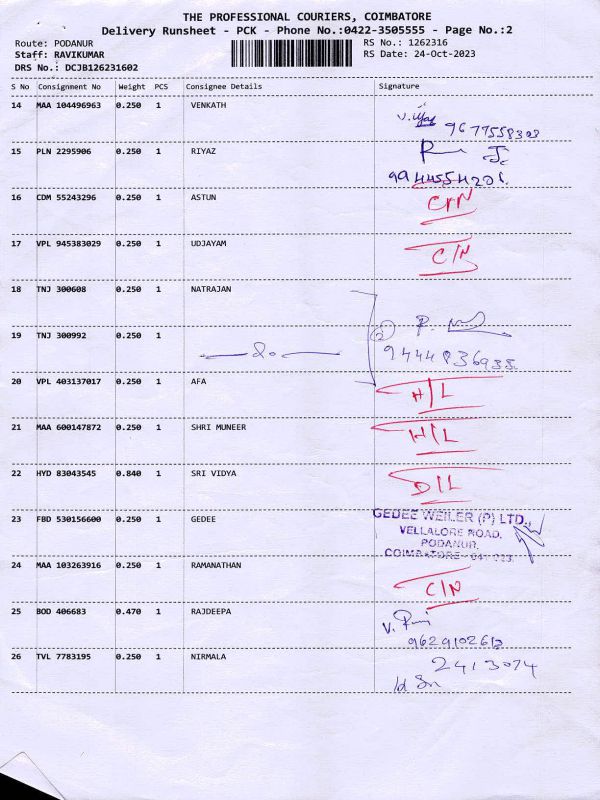 THE PROFESSIONAL COURIERS, COIMBATORE
Delivery Runsheet - PCK - Phone No.:0422-3505555 - Page No.:2
Route: PODANUR RS No.: 1262316
Staff: RAVIKUMAR RS Date: 24-Oct-2023
DRS No.: DCJB126231602
S No Consignment No Weight PCS Consignee Details Signature
14 MAA 104496963 0.250 1 VENKATH
9677558303
15 PLN 2295906 0.250 1 RIYAZ
16 CDM 55243296 0.250 1 ASTUN
17 VPL 945383029 0.250 1 UDJAYAM C/N
18 TNJ 300608 0.250 1 NATRAJAN
19 TNJ 300992 0.250 1
9444836935
20 VPL 403137017 0.250 1 AFA H/L
21 MAA 600147872 0.250 1 SHRI MUNEER H/L
22 HYD 83043545 0.840 1 SRI VIDYA D/L
23 FBD 530156600 0.250 1 GEDEE GEDEE WEILER (P) LTD.,
VELLALORE ROAD,
PODANUR,
COIMBATORE
24 MAA 103263916 0.250 1 RAMANATHAN C/N
25 BOD 406683 0.470 1 RAJDEEPA
9629102612
26 TVL 7783195 0.250 1 NIRMALA 2413074